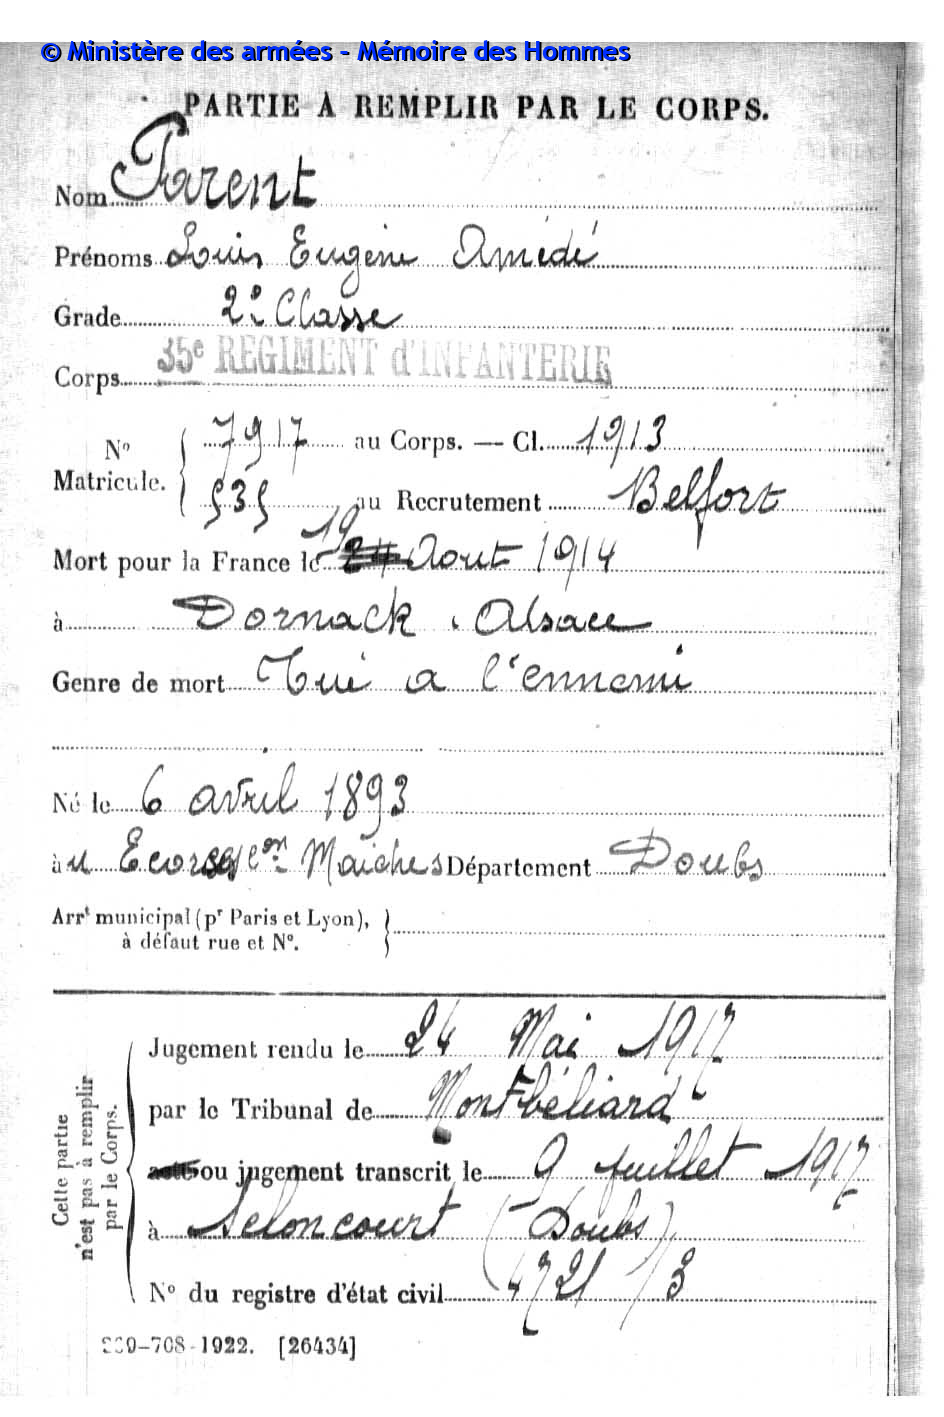 © Ministère des armées - Mémoire des Hommes
PARTIE À REMPLIR PAR LE CORPS.
Nom Parent
Prénoms Louis Eugène Amédé
Grade 2e Classe
Corps 35e REGIMENT d'INFANTERIE
No Matricule. 7917 au Corps. — Cl. 1913
535 au Recrutement Belfort
Mort pour la France le 19 Aout 1914
à Dornack . Alsace
Genre de mort Tué a l'ennemi
Né le 6 avril 1893
à u Ecorces con Maiches Département Doubs
Arrt municipal (pr Paris et Lyon),
à défaut rue et No.
Cette partie n'est pas à remplir par le Corps.
Jugement rendu le 24 Mai 1917
par le Tribunal de Montbéliard
ou jugement transcrit le 9 juillet 1917
à Seloncourt (Doubs)
No du registre d'état civil 4721/3
-708-1922. [26434]